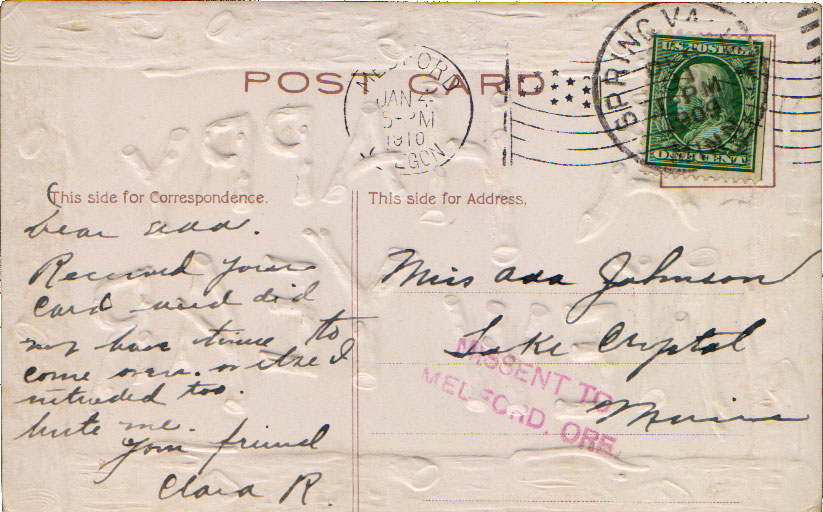 POST CARD
MEDFORD
JAN 4
5-PM
1910
OREGON
SPRING VA
PM
1909
MINN
U.S. POSTAGE
ONE CENT
This side for Correspondence.
This side for Address.
Dear
Received your
card and did
not have time to
come over. or else I
intended too.
write me.
Your friend
Clara R.
Miss Ada Johnson
Lake Crystal
Minn
MISSENT TO
MELFORD, ORE.